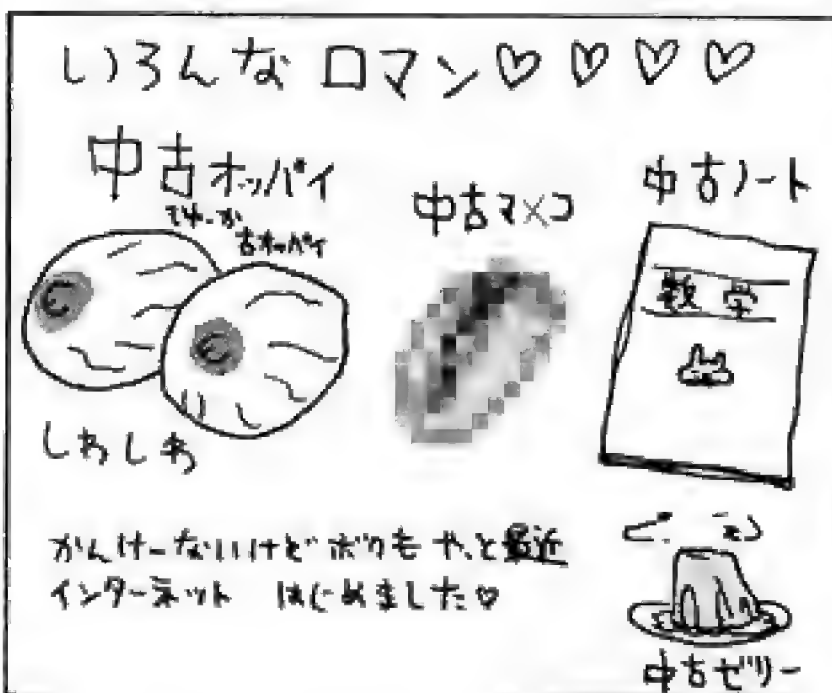 いろんなロマン♡♡♡♡
中古オッパイ
てゆーか
古オッパイ
しわしわ
中古マ×コ
中古ノート
数学
かんけーないけどボクもやっと最近
インターネット はじめました♡
中古ゼリー